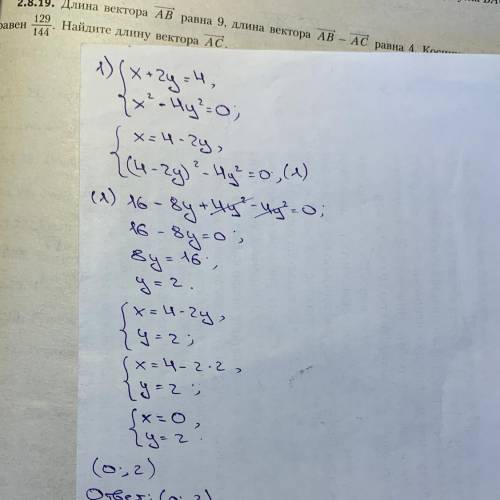 2.8.19. Длина вектора AB равна 9, длина вектора AB − AC равна 4.
равен 129/144. Найдите длину вектора AC.
1) { x + 2y = 4,
x² - 4y² = 0;
{ x = 4 - 2y,
(4 - 2y)² - 4y² = 0, (1)
(1) 16 - 8y + 4y² - 4y² = 0;
16 - 8y = 0;
8y = 16;
y = 2.
{ x = 4 - 2y,
y = 2;
{ x = 4 - 2·2,
y = 2;
{ x = 0,
y = 2.
(0; 2)
Ответ: (0; 2)